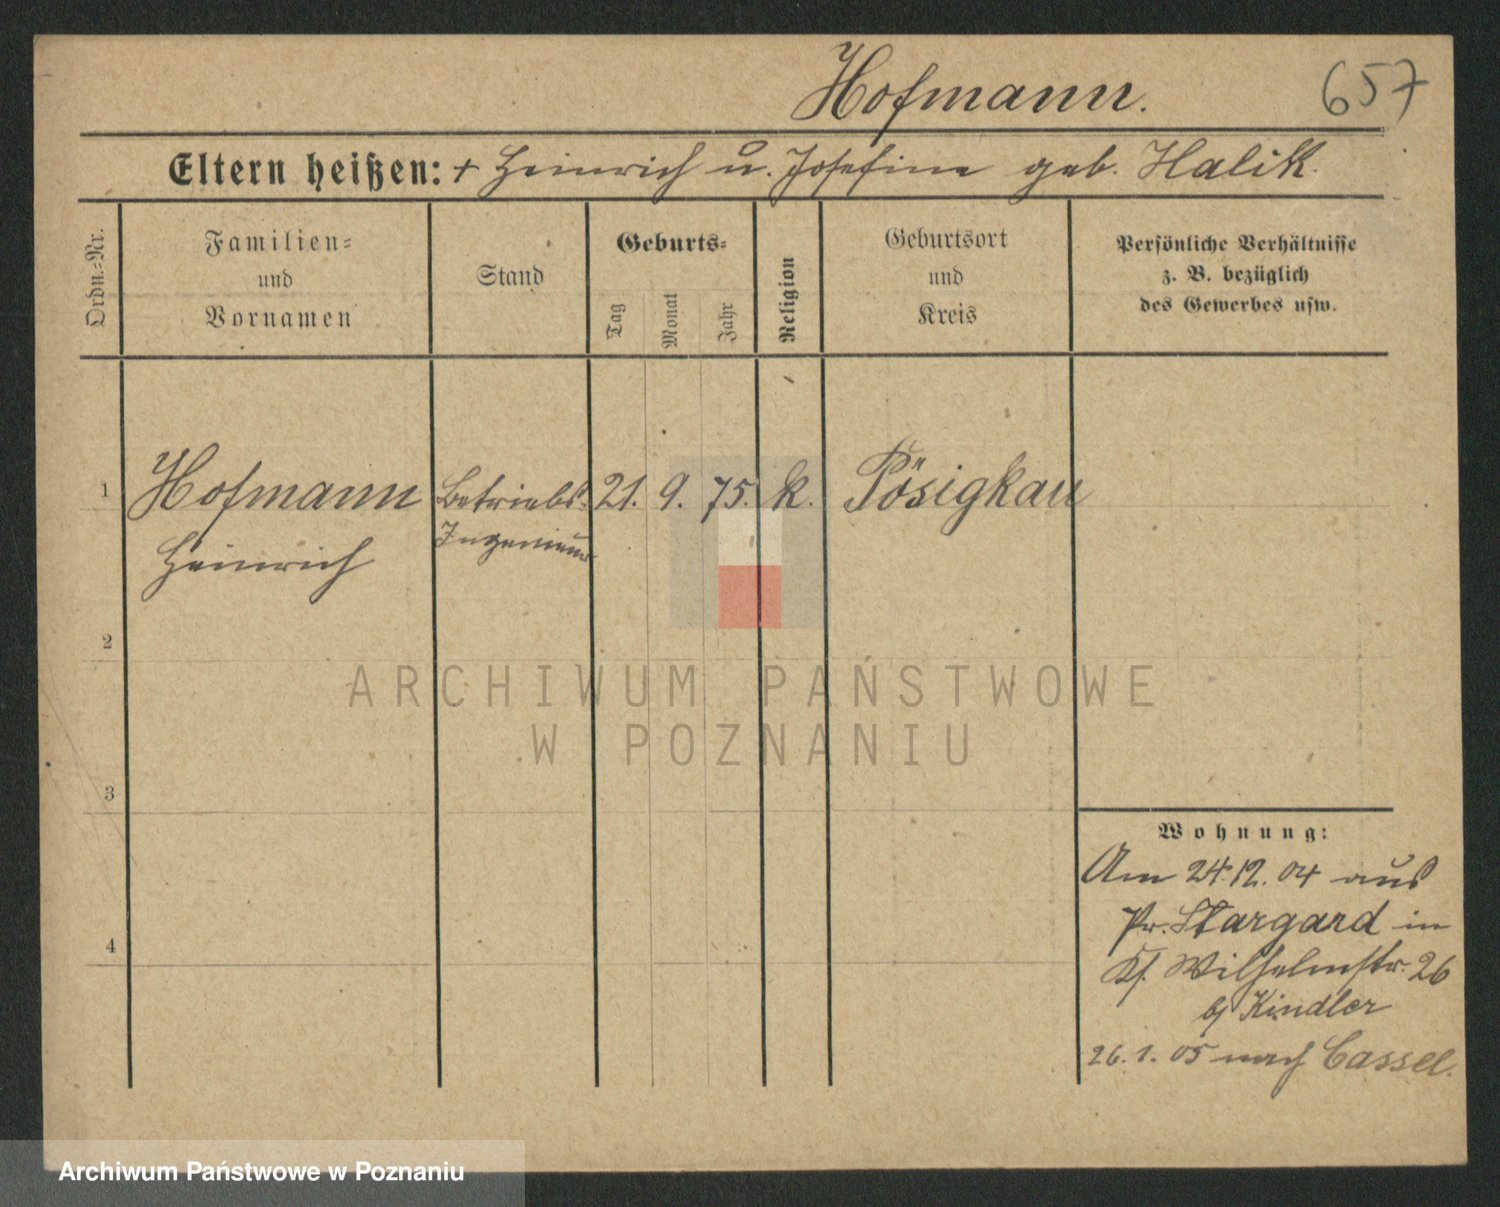 Hofmann.
657
Eltern heißen: + Heinrich u. Josefine geb. Halik.
Ordn.-Nr.
Familien-
und
Vornamen
Stand
Geburts-
Tag
Monat
Jahr
Religion
Geburtsort
und
Kreis
Persönliche Verhältnisse
z. B. bezüglich
des Gewerbes usw.
1 Hofmann Betriebs- 21. 9. 75. k. Pösigkau
Heinrich Ingenieur
2
ARCHIWUM PAŃSTWOWE
W POZNANIU
3
Wohnung:
Am 24.12.04 aus
Pr. Stargard in
4
Wilhelmstr. 26
b/ Kindler
26.1.05 nach Cassel.
Archiwum Państwowe w Poznaniu